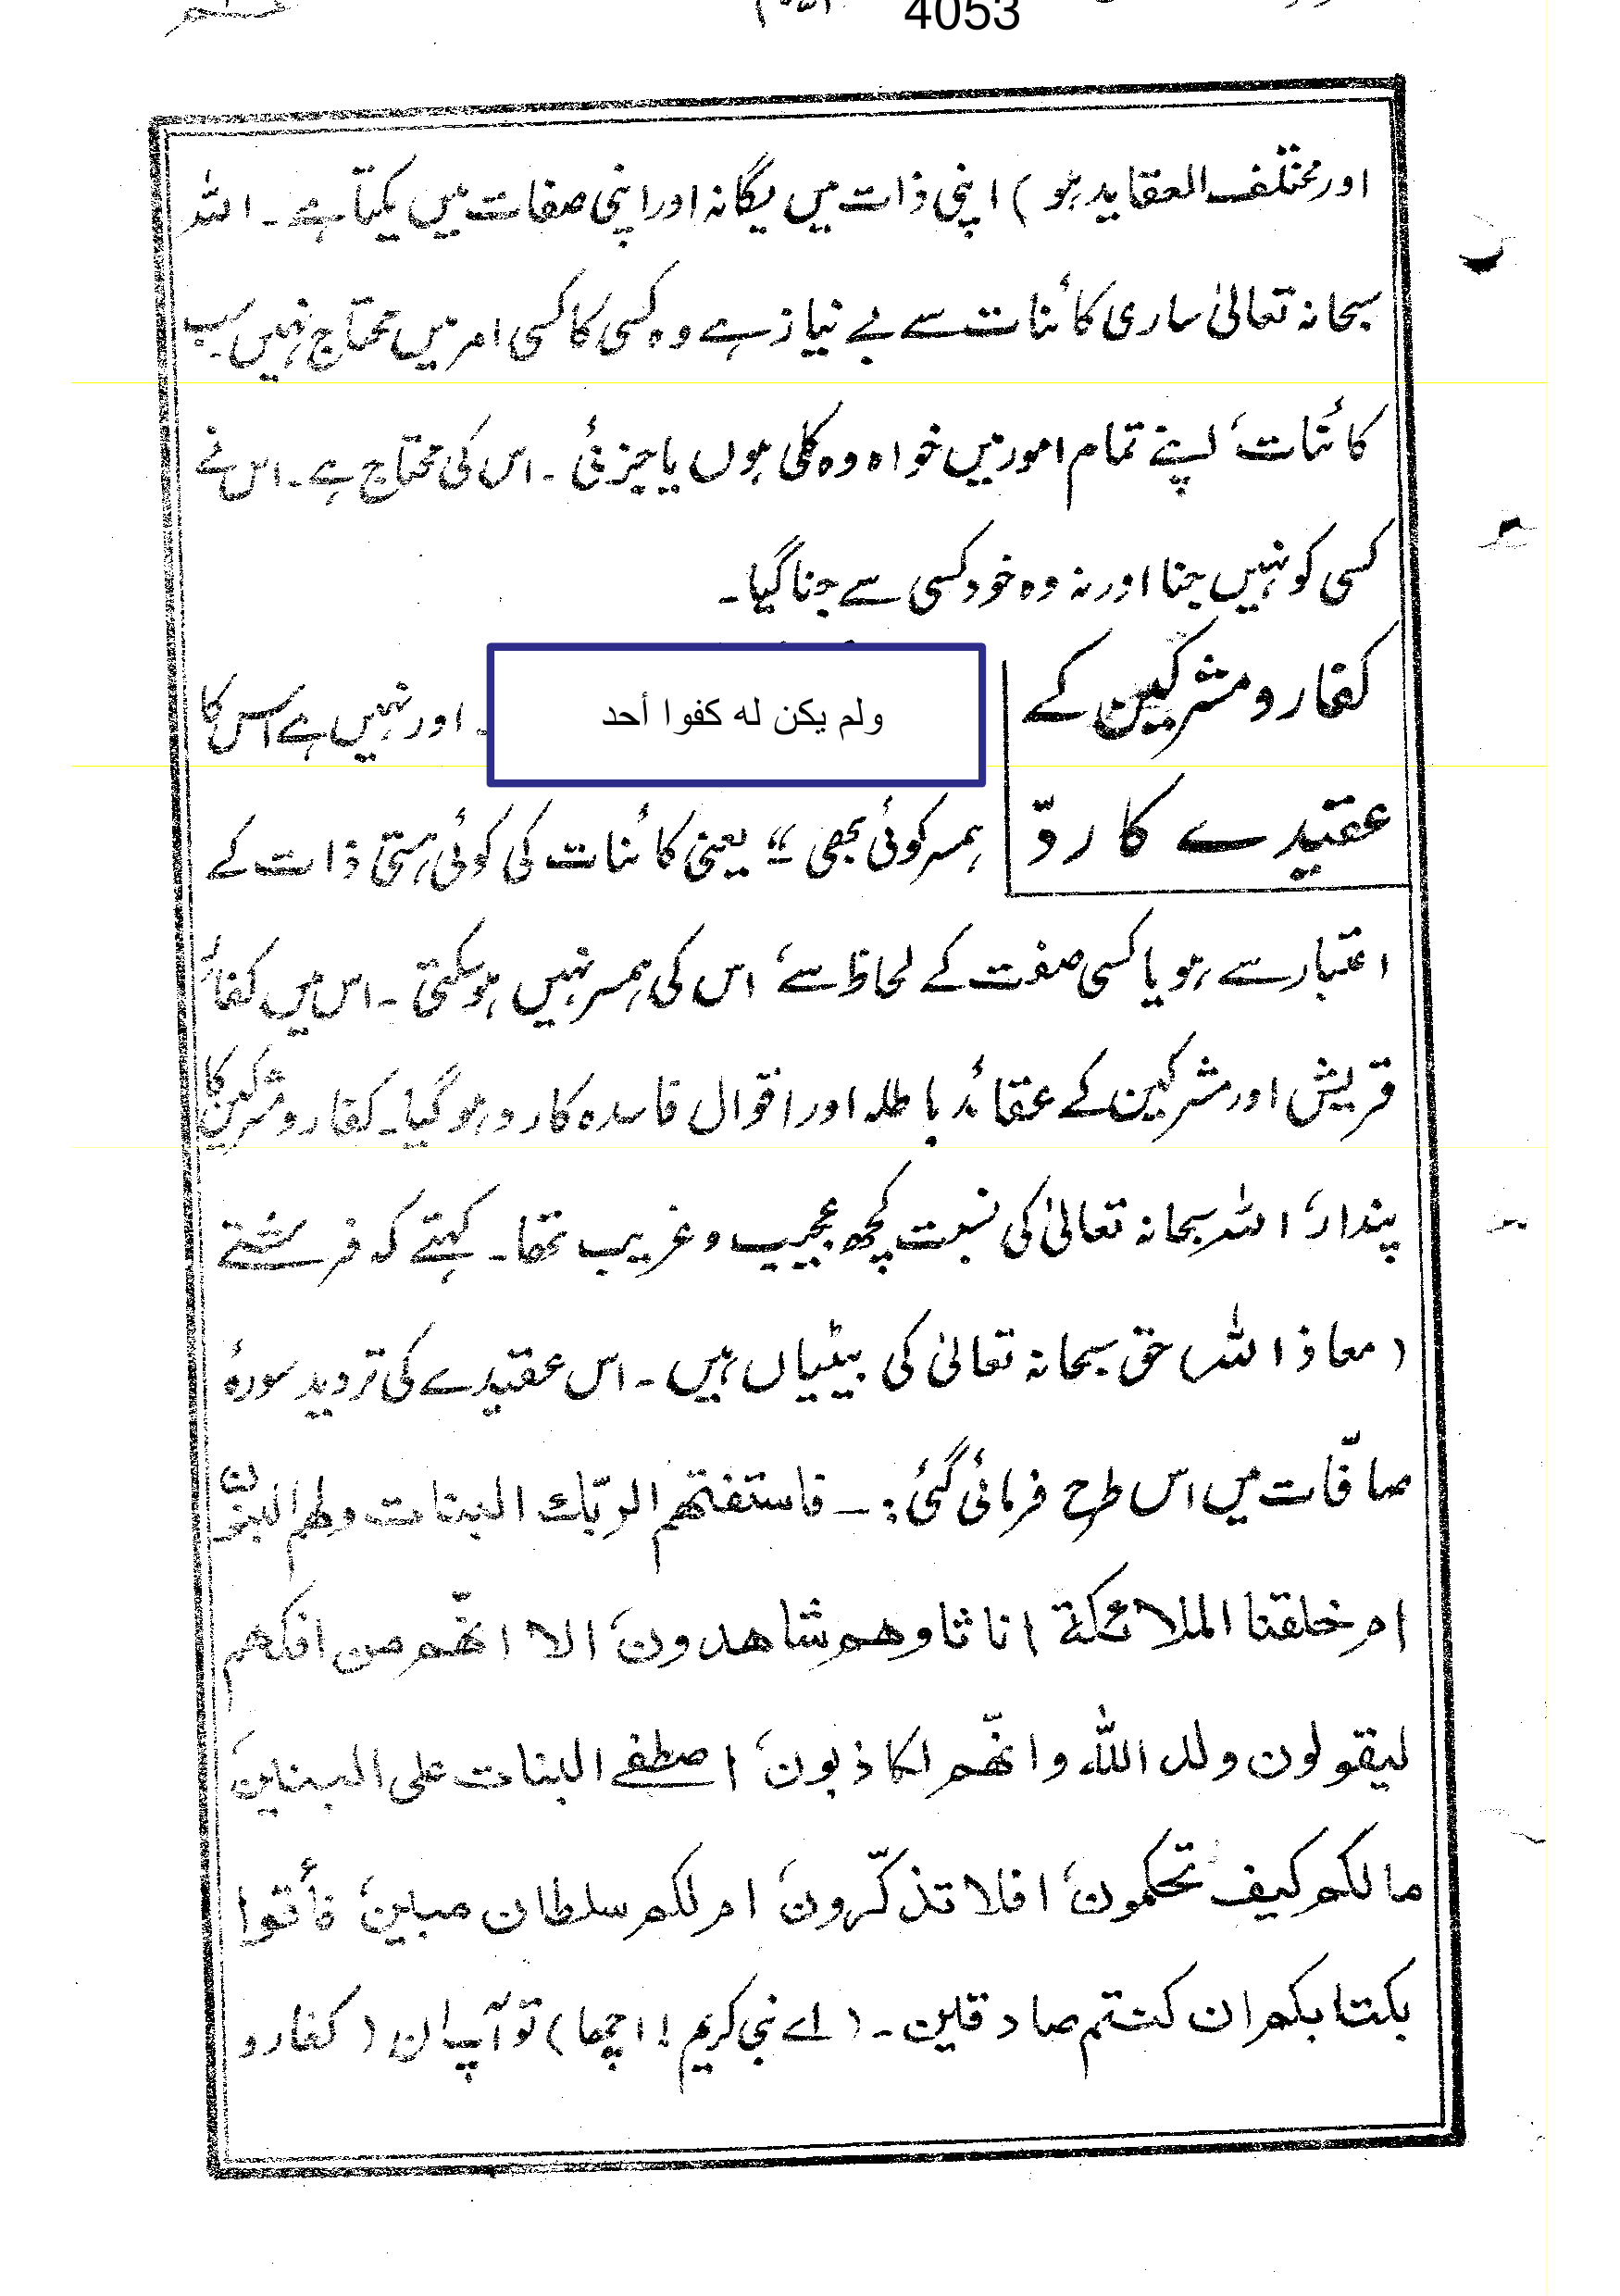 4053
اور مختلف العقاید ہو) اپنی ذات میں یگانہ اور اپنی صفات میں یکتا ہے۔ اللہ
سبحانہ تعالیٰ ساری کائنات سے بے نیاز ہے وہ کسی کا کسی امر میں محتاج نہیں سب
کائنات، اپنے تمام امور میں خواہ وہ کلی ہوں یا جزئی۔ اس کی محتاج ہے۔ اس نے
کسی کو نہیں جنا اور نہ وہ خود کسی سے جنا گیا۔
کفار و مشرکین کے
عقیدے کا ردّ
ولم يكن له كفوا أحد
۔ اور نہیں ہے اس کا
ہمسر کوئی بھی“ یعنی کائنات کی کوئی ہستی ذات کے
اعتبار سے ہو یا کسی صفت کے لحاظ سے، اس کی ہمسر نہیں ہو سکتی۔ اس میں کفار
قریش اور مشرکین کے عقائد باطلہ اور اقوال فاسدہ کا رد ہو گیا۔ کفار و مشرکین کا
پندار، اللہ سبحانہ تعالیٰ کی نسبت کچھ عجیب و غریب تھا۔ کہتے کہ فرشتے
(معاذ اللہ) حق سبحانہ تعالیٰ کی بیٹیاں ہیں۔ اس عقیدے کی تردید سورۂ
صافّات میں اس طرح فرمائی گئی:۔ فاستفتهم الربّك البنات ولهم البنون
ام خلقنا الملائكة اناثا وهم شاهدون، الا انّهم من افكهم
ليقولون ولد الله وانّهم لكاذبون، اصطفے البنات على البنين،
مالكم كيف تحكمون، افلا تذكّرون، ام لكم سلطان مبين، فأتوا
بكتابكم ان كنتم صادقين۔ (اے نبی کریم! اچھا) تو آپ ان (کفار و